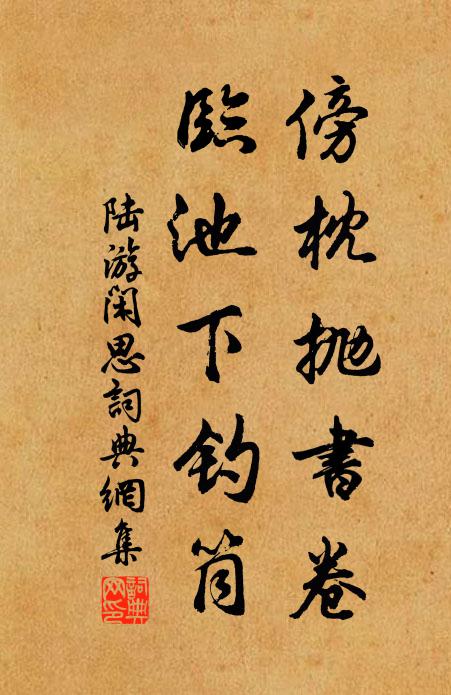 傍枕拋書卷
臨池下釣筒
陆游闲思詞典網集
詞典网印